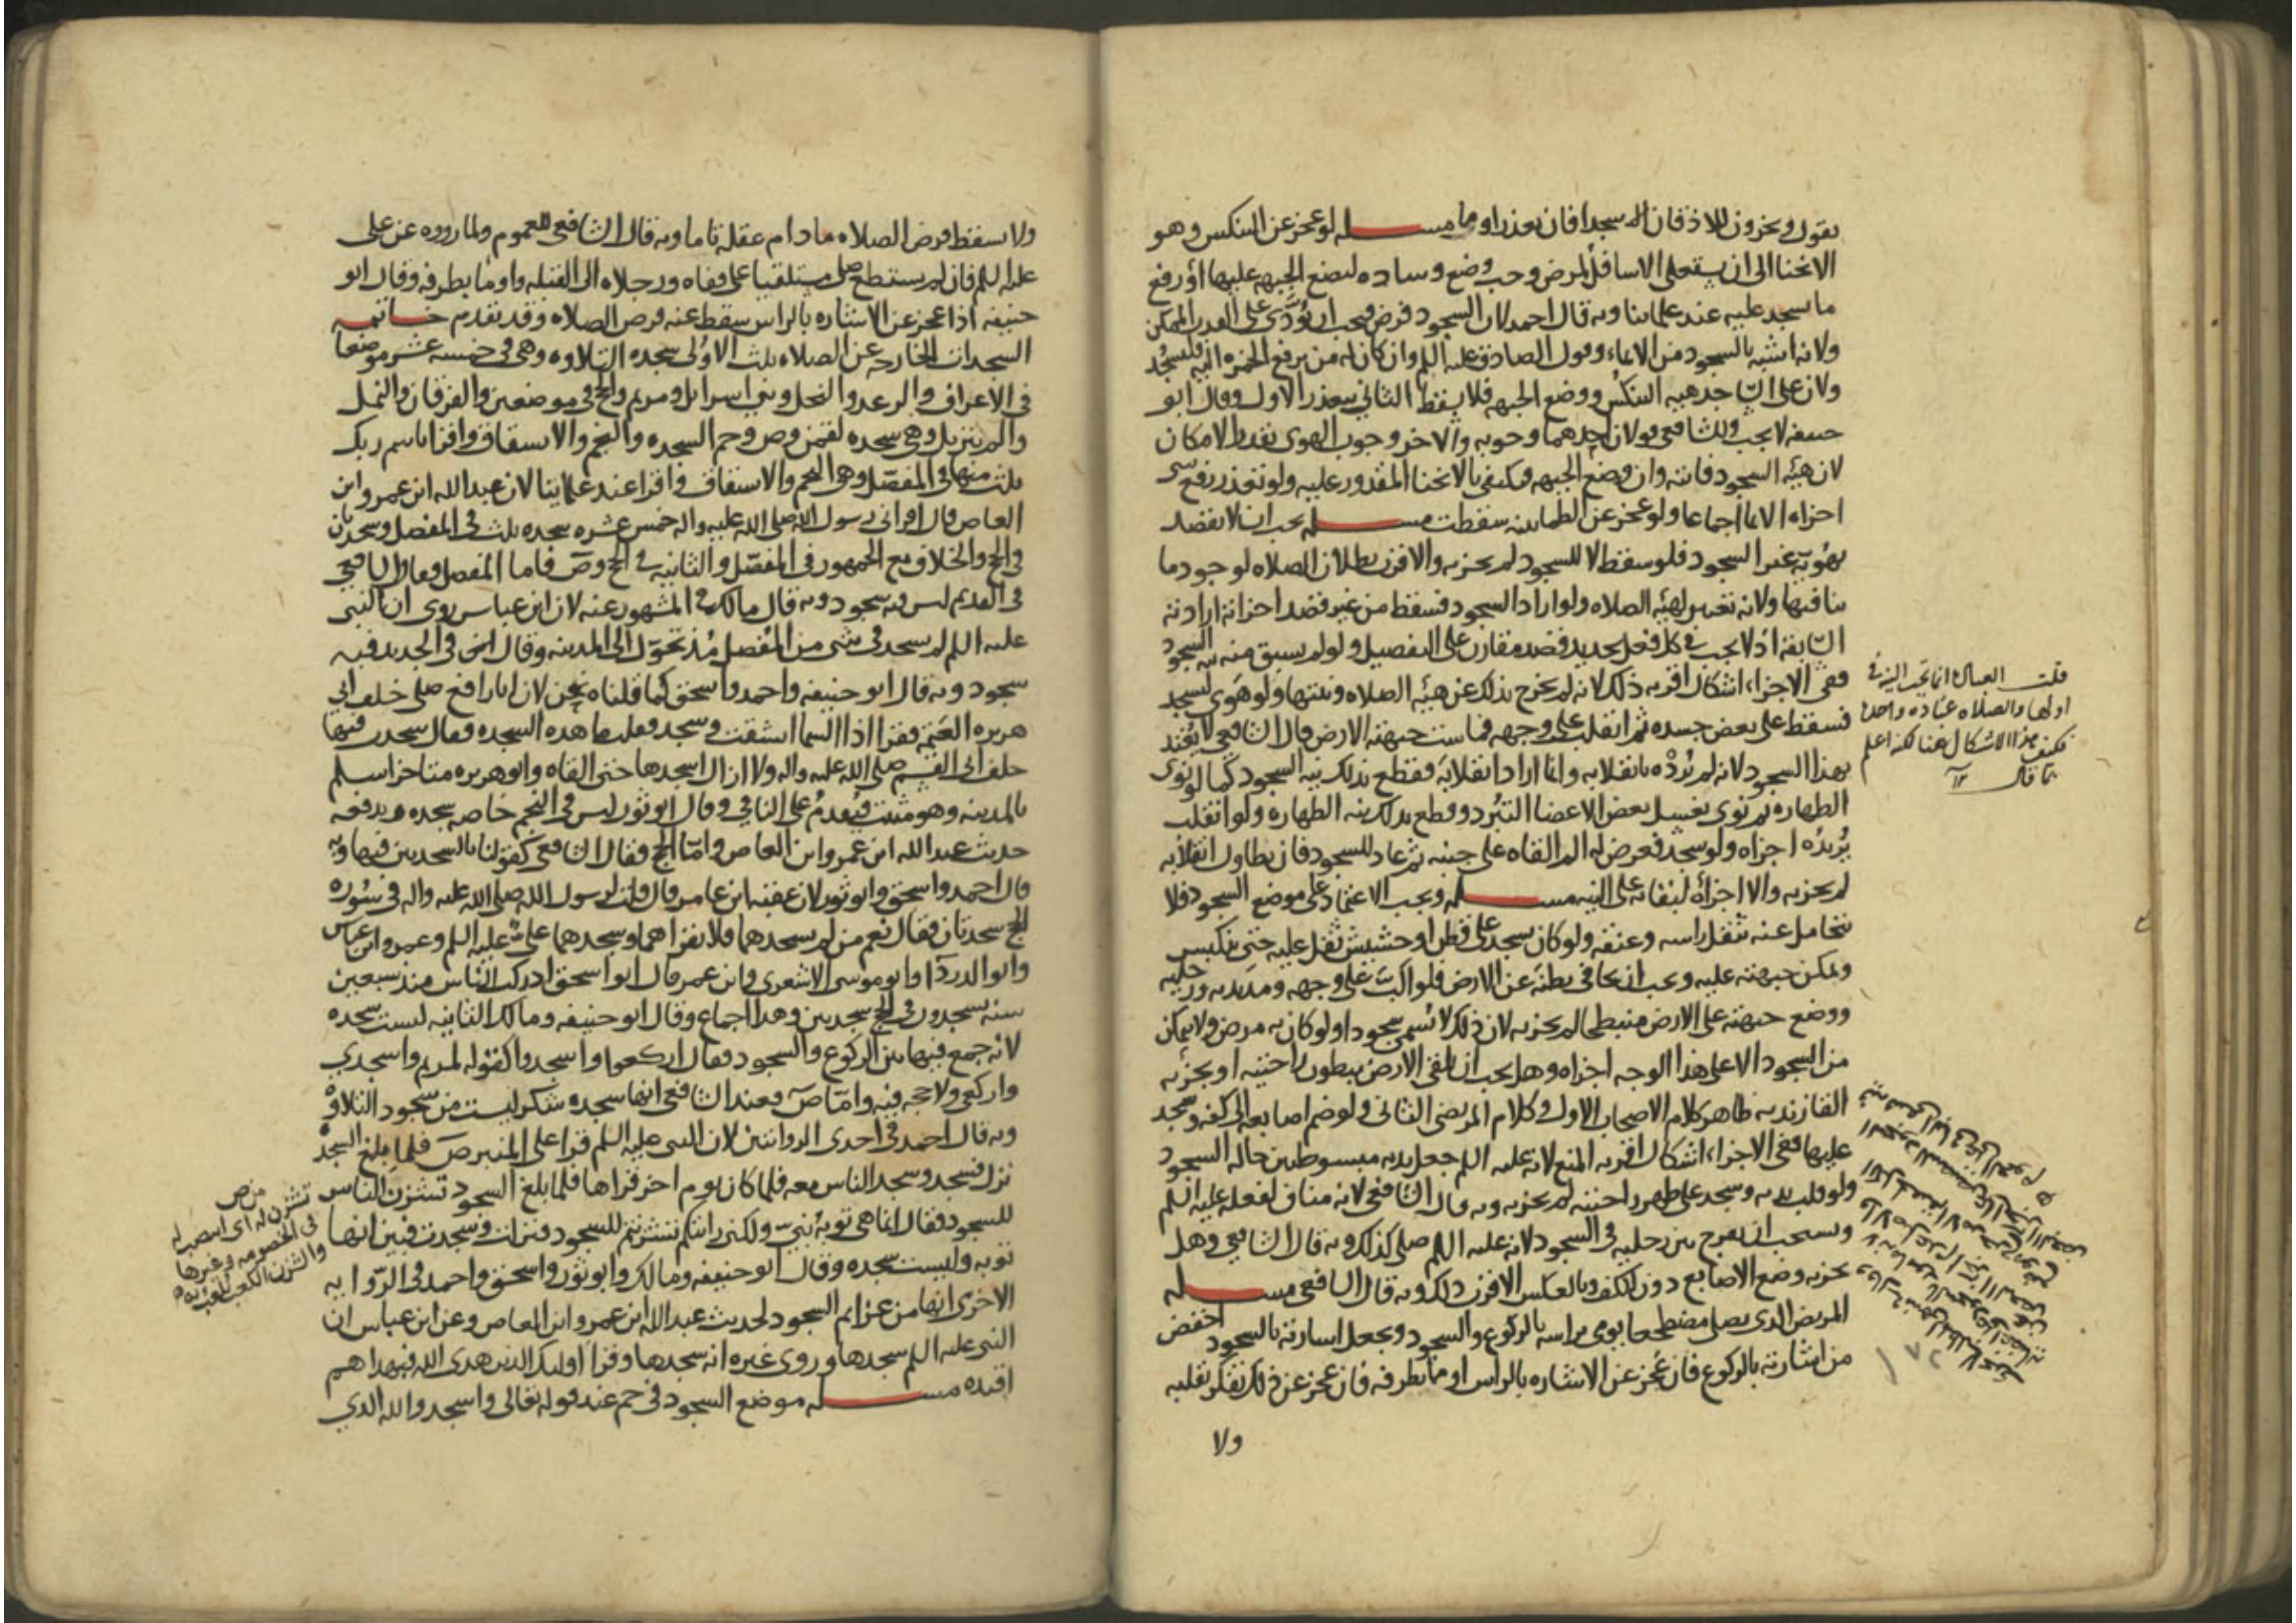 يقول ويخرون للاذقان سجدا فان تعذر اوما مسله لو عجز عن التنكس وهو
الانحنا الى ان يستعلى الاسافل لمرض وجب وضع وساده ليضع الجبهه عليها او رفع
ما يسجد عليه عند علمائنا وبه قال احمد لان السجود فرض فيجب ان يؤدى على القدر الممكن
ولانه اشبه بالسجود من الايماء وقول الصادق عليه السلم وان كان له من يرفع الخمره اليه فليسجد
ولان على الساجد هيئه التنكس ووضع الجبهه فلا يسقط الثاني بتعذر الاول وقال ابو
حنيفه لا يجب وللشافعي قولان احدهما وجوبه والاخر وجوب الهوى بقدر الامكان
لان هيئه السجود فاتته وان وضع الجبهه فيكتفى بالانحنا المقدور عليه ولو تعذر رفع شى
اجزاه الايما اجماعا ولو عجز عن الطمانينه سقطت مسله يجب ان لا يقصد
بهويه غير السجود فلو سقط لا للسجود لم يجزيه والاقرب بطلان الصلاه لوجود ما
ينافيها ولانه تغيير لهيئه الصلاه ولو اراد السجود فسقط من غير قصد اجزاته ارادته
السابقه اذ لا يجب في كل فعل تجديد قصد مقارن على التفصيل ولو لم يسبق منه نيه السجود
ففي الاجزاء اشكال اقربه ذلك لانه لم يخرج بذلك عن هيئه الصلاه ونيتها ولو هوى ليسجد
فسقط على بعض جسده ثم انقلب على وجهه فماست جبهته الارض قال الشافعي لا يعتد
بهذا السجود لانه لم يرده بانقلابه وانما اراد انقلابه فقطع بذلك نيه السجود كما لو نوى
الطهاره ثم نوى بغسل بعض الاعضا التبرد وقطع بذلك نيه الطهاره ولو انقلب
يريده اجزاه ولو سجد فعرض له الم القاه على جنبه ثم عاد للسجود فان تطاول انقلابه
لم يجزيه والا اجزاه لبقائه على النيه مسله ويجب الاعتماد على موضع السجود فلا
يتحامل عنه بثقل راسه وعنقه ولو كان يسجد على قطن او حشيش ثقل عليه حتى ينكبس
ويمكن جبهته عليه ويجب ان يجافي بطنه عن الارض فلو اكب على وجهه ومد يديه ورجليه
ووضع جبهته على الارض منبطحا لم يجزيه لان ذلك لا يسمى سجودا ولو كان به مرض ولا يمكن
من السجود الا على هذا الوجه اجزاه وهل يجب ان يلقى الارض ببطون راحتيه او يجزيه
القا زنديه ظاهر كلام الاصحاب الاول وكلام المرتضى الثاني ولو ضم اصابعه الى كفه وسجد
عليها ففي الاجزاء اشكال اقربه المنع لانه عليه السلم جعل يديه مبسوطتين حاله السجود
ولو قلب يديه وسجد على ظهر راحتيه لم يجزيه وبه قال الشافعي لانه مناف لفعله عليه السلم
ويستحب ان يفرج بين رجليه في السجود لانه عليه السلم صلى كذلك وبه قال الشافعي وهل
يجزيه وضع الاصابع دون الكف وبالعكس الاقرب ذلك وبه قال الشافعي مسله
المريض الذي يصلي مضطجعا يومى براسه بالركوع والسجود ويجعل اشارته بالسجود اخفض
من اشارته بالركوع فان عجز عن الاشاره بالراس اوما بطرفه فان عجز عن ذلك تفكر بقلبه
ولا
قلت العباده انما تجب النيه في
اولها والصلاه عباده واحده
فكيف هذا الاشكال هنا لكنه اعلم
بما قال
١٨٢
ولا يسقط فرض الصلاه ما دام عقله ثابتا وبه قال الشافعي للعموم ولما رووه عن على
عليه السلم فان لم يستطع صلى مستلقيا على قفاه ورجلاه الى القبله واوما بطرفه وقال ابو
حنيفه اذا عجز عن الاشاره بالراس سقط عنه فرض الصلاه وقد تقدم خاتمه
السجدات الخارجه عن الصلاه ثلث الاولى سجده التلاوه وهي في خمسه عشر موضعا
في الاعراف والرعد والنحل وبني اسرائل ومريم والحج في موضعين والفرقان والنمل
والم تنزيل وهي سجده لقمن وص وحم السجده والنجم والانشقاق واقرا باسم ربك
ثلث منها في المفصل وهي النجم والانشقاق واقرا عند علمائنا لان عبد الله ابن عمرو ابن
العاص قال اقرانى رسول الله صلى الله عليه واله خمس عشره سجده ثلث في المفصل وسجدتان
في الحج والخلاف مع الجمهور في المفصل والثانيه في الحج وص فاما المفصل فقال الشافعي
في القديم ليس فيه سجود وبه قال مالك في المشهور عنه لان ابن عباس روى ان النبى
عليه السلم لم يسجد في شى من المفصل مذ تحول الى المدينه وقال في الجديد فيه
سجود وبه قال ابو حنيفه واحمد واسحق كما قلناه نحن لان ابا رافع صلى خلف ابى
هريره العتمه فقرا اذا السما انشقت وسجد فقلت ما هذه السجده فقال سجدت فيها
خلف ابي القسم صلى الله عليه واله ولا ازال اسجدها حتى القاه وابو هريره متاخر اسلم
بالمدينه وهو مثبت فيقدم على النافي وقال ابو ثور ليس في النجم خاصه سجده ويدفعه
حديث عبد الله ابن عمرو ابن العاص واما الحج فقال الشافعي كقولنا بالسجدتين فيها وبه
قال احمد واسحق وابو ثور لان عقبه ابن عامر قال قلت لرسول الله صلى الله عليه واله في سوره
الحج سجدتان فقال نعم من لم يسجدهما فلا يقراهما وسجدهما علي عليه السلم وعمر وابن عباس
وابو الدردا وابو موسى الاشعري وابن عمر قال ابو اسحق ادركت الناس منذ سبعين
سنه يسجدون في الحج سجدتين وهذا اجماع وقال ابو حنيفه ومالك الثانيه ليست سجده
لانه جمع فيها بين الركوع والسجود فقال اركعوا واسجدوا كقوله لمريم واسجدي
واركعي ولا حجه فيه واما ص فعند الشافعي انها سجده شكر ليست من سجود التلاوه
وبه قال احمد في احدى الروايتين لان النبى عليه السلم قرا على المنبر ص فلما بلغ السجده
نزل فسجد وسجد الناس معه فلما كان يوم اخر قراها فلما بلغ السجود تشزن الناس
للسجود فقال انما هي توبه نبي ولكني رايتكم تشزنتم للسجود فنزلت وسجدت فبين انها
توبه وليست سجده وقال ابو حنيفه ومالك وابو ثور واسحق واحمد في الروايه
الاخرى انها من عزايم السجود لحديث عبد الله ابن عمرو ابن العاص وعن ابن عباس ان
النبى عليه السلم سجدها وروى غيره انه سجدها وقرا اوليك الذين هدى الله فبهداهم
اقتده مسله موضع السجود في حم عند قوله تعالى واسجدوا لله الذي
تشزن له اي انتصب له
في الخصومه وغيرها